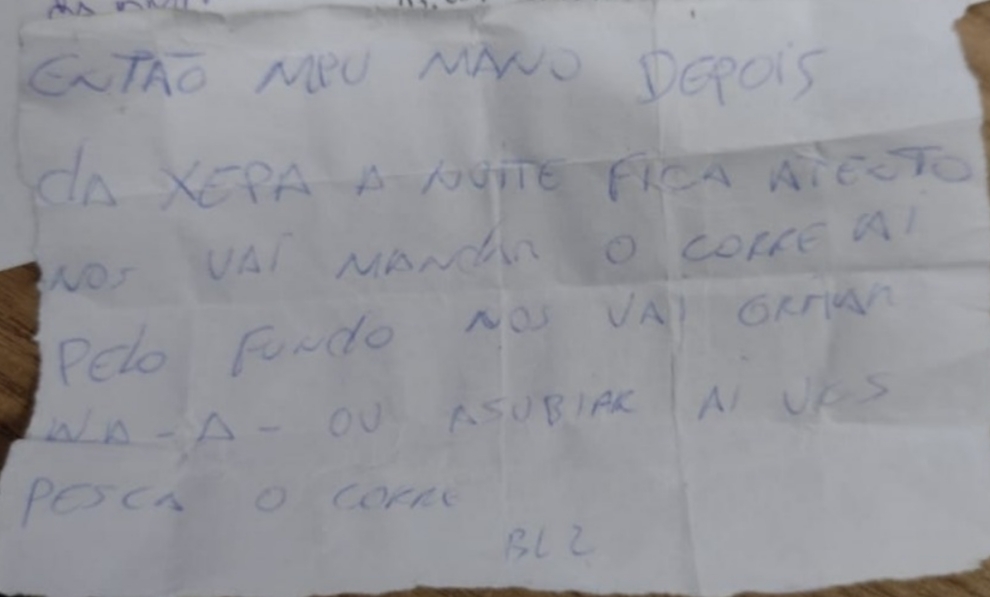 ENTÃO MEU MANO DEPOIS
dA XEPA A NOITE FICA ATENTO
NOS VAI MANdAR O CORRE AI
PELO FUNdO NOS VAI GRITAR
NA - A - OU ASUBIAR AI VCS
PESCA O CORRE
BLZ